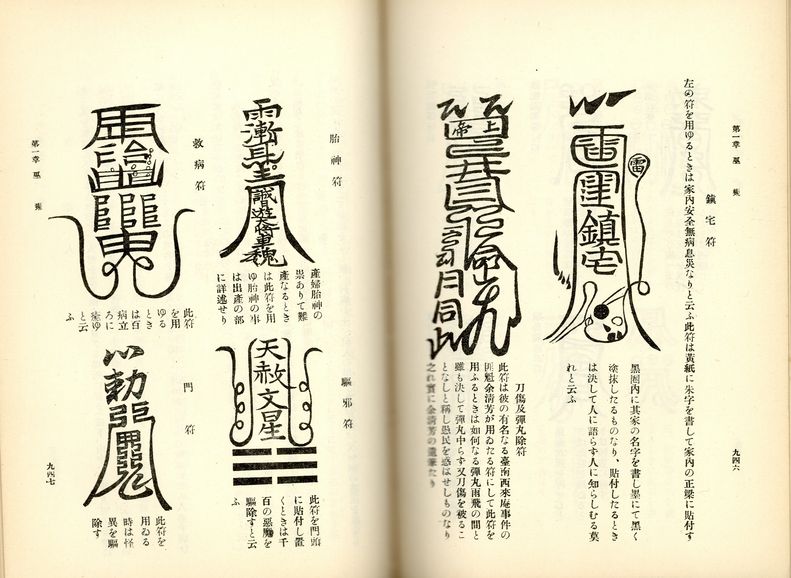 第一章 巫 蠱
九四六
鎭宅符
左の符を用ゆるときは家内安全無病息災なりと云ふ此符は黃紙に朱字を書して家內の正樑に貼付す
雷
鎮宅
黑圈內に其家の名字を書し墨にて黑く
塗抹したるものなり、貼付したるとき
は決して人に語らず人に知らしむる莫
れと云ふ
上帝
月同
刀傷及彈丸除符
此符は彼の有名なる臺南西來庵事件の
匪魁余清芳が用ゐたる符にして此符を
用ふるときは如何なる彈丸雨飛の間と
雖も決して彈丸中らず又刀傷を被るこ
となしと稱し愚民を惑はせしものなり
之れ實に余清芳の遺筆たり
胎神符
產婦胎神の
祟ありて難
產なるとき
は此符を用
ゆ胎神の事
は出產の部
に詳述せり
驅邪符
天赦文星
此符を門頭
に貼付し置
くときは千
百の惡魔を
驅除すと云
ふ
救病符
此符
を用
ゆる
とき
は百
病立
ろに
痊ゆ
と云
ふ
門符
勅
此符を
用ゐる
時は怪
異を驅
除す
第一章 巫
九四七